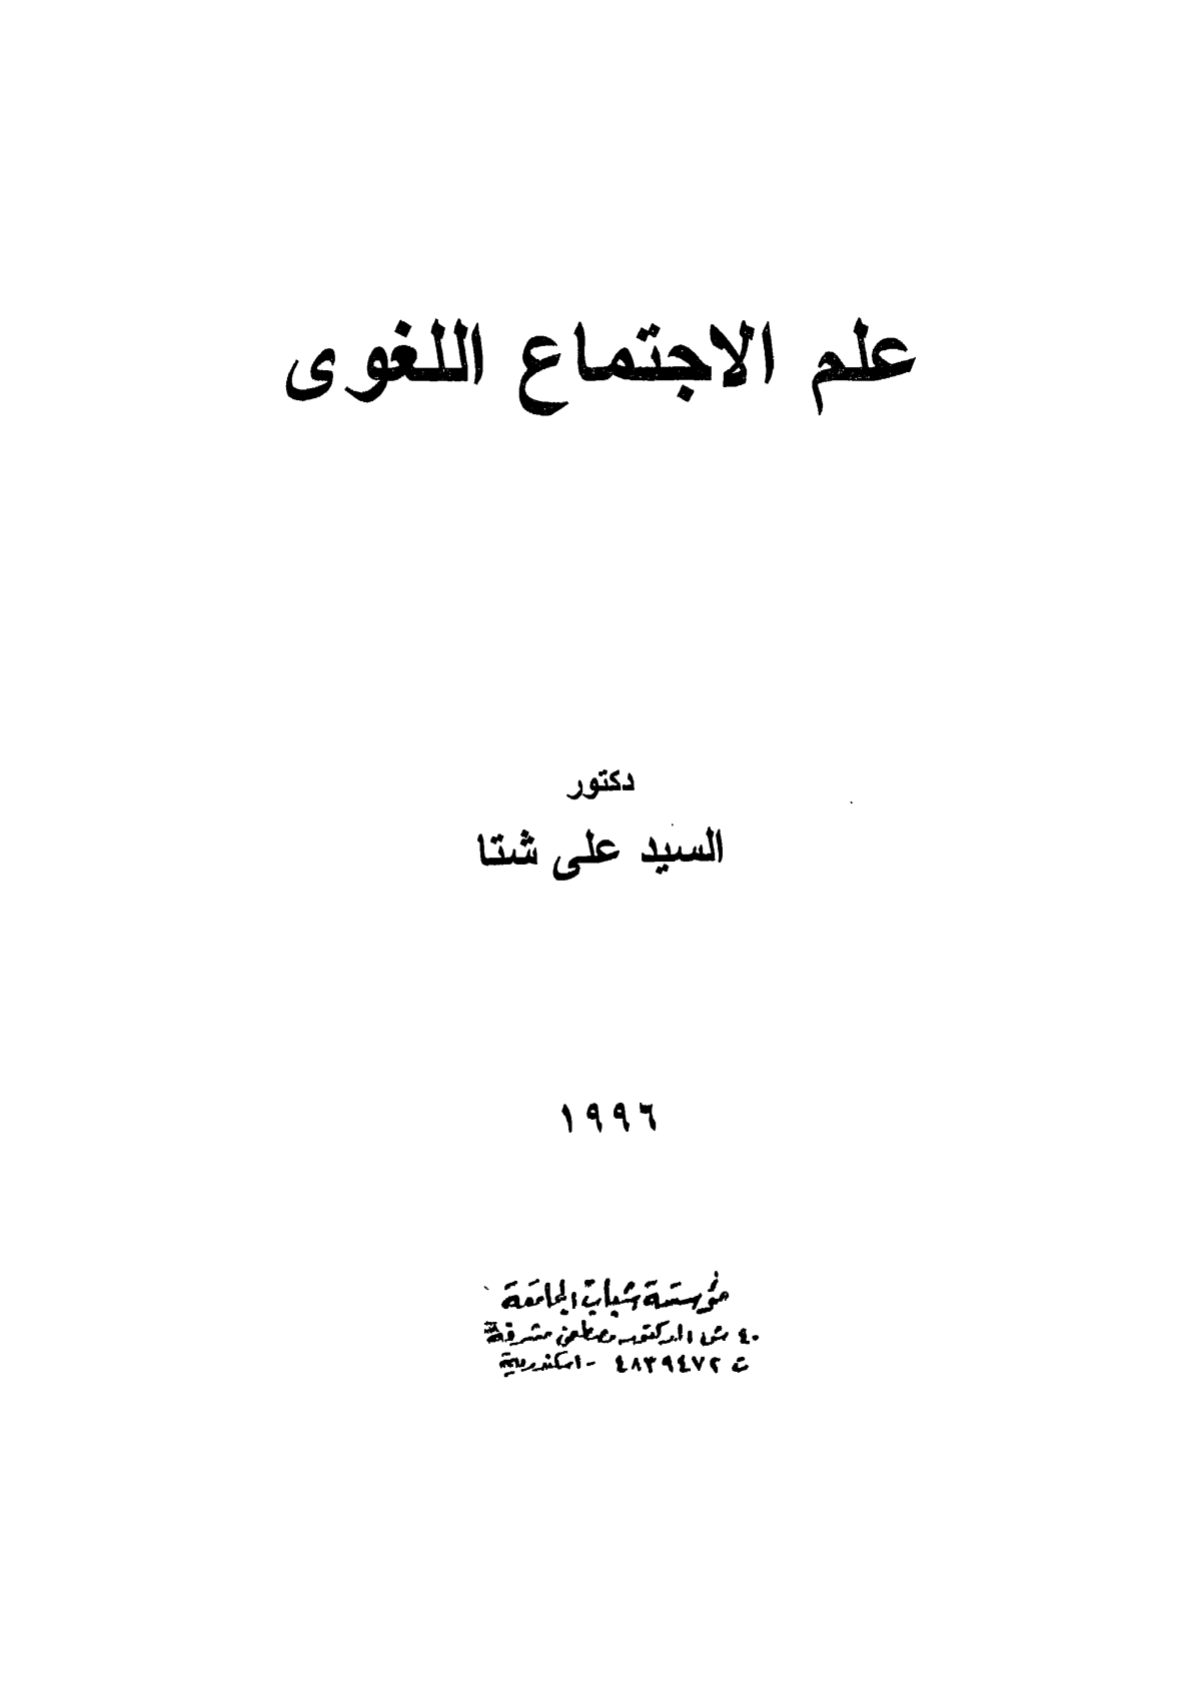 علم الاجتماع اللغوى
دكتور
السيد على شتا
١٩٩٦
مؤسسة شباب الجامعة
٤٠ ش الدكتور مصطفى مشرفة
ت ٤٨٣٩٤٧٢ - اسكندرية